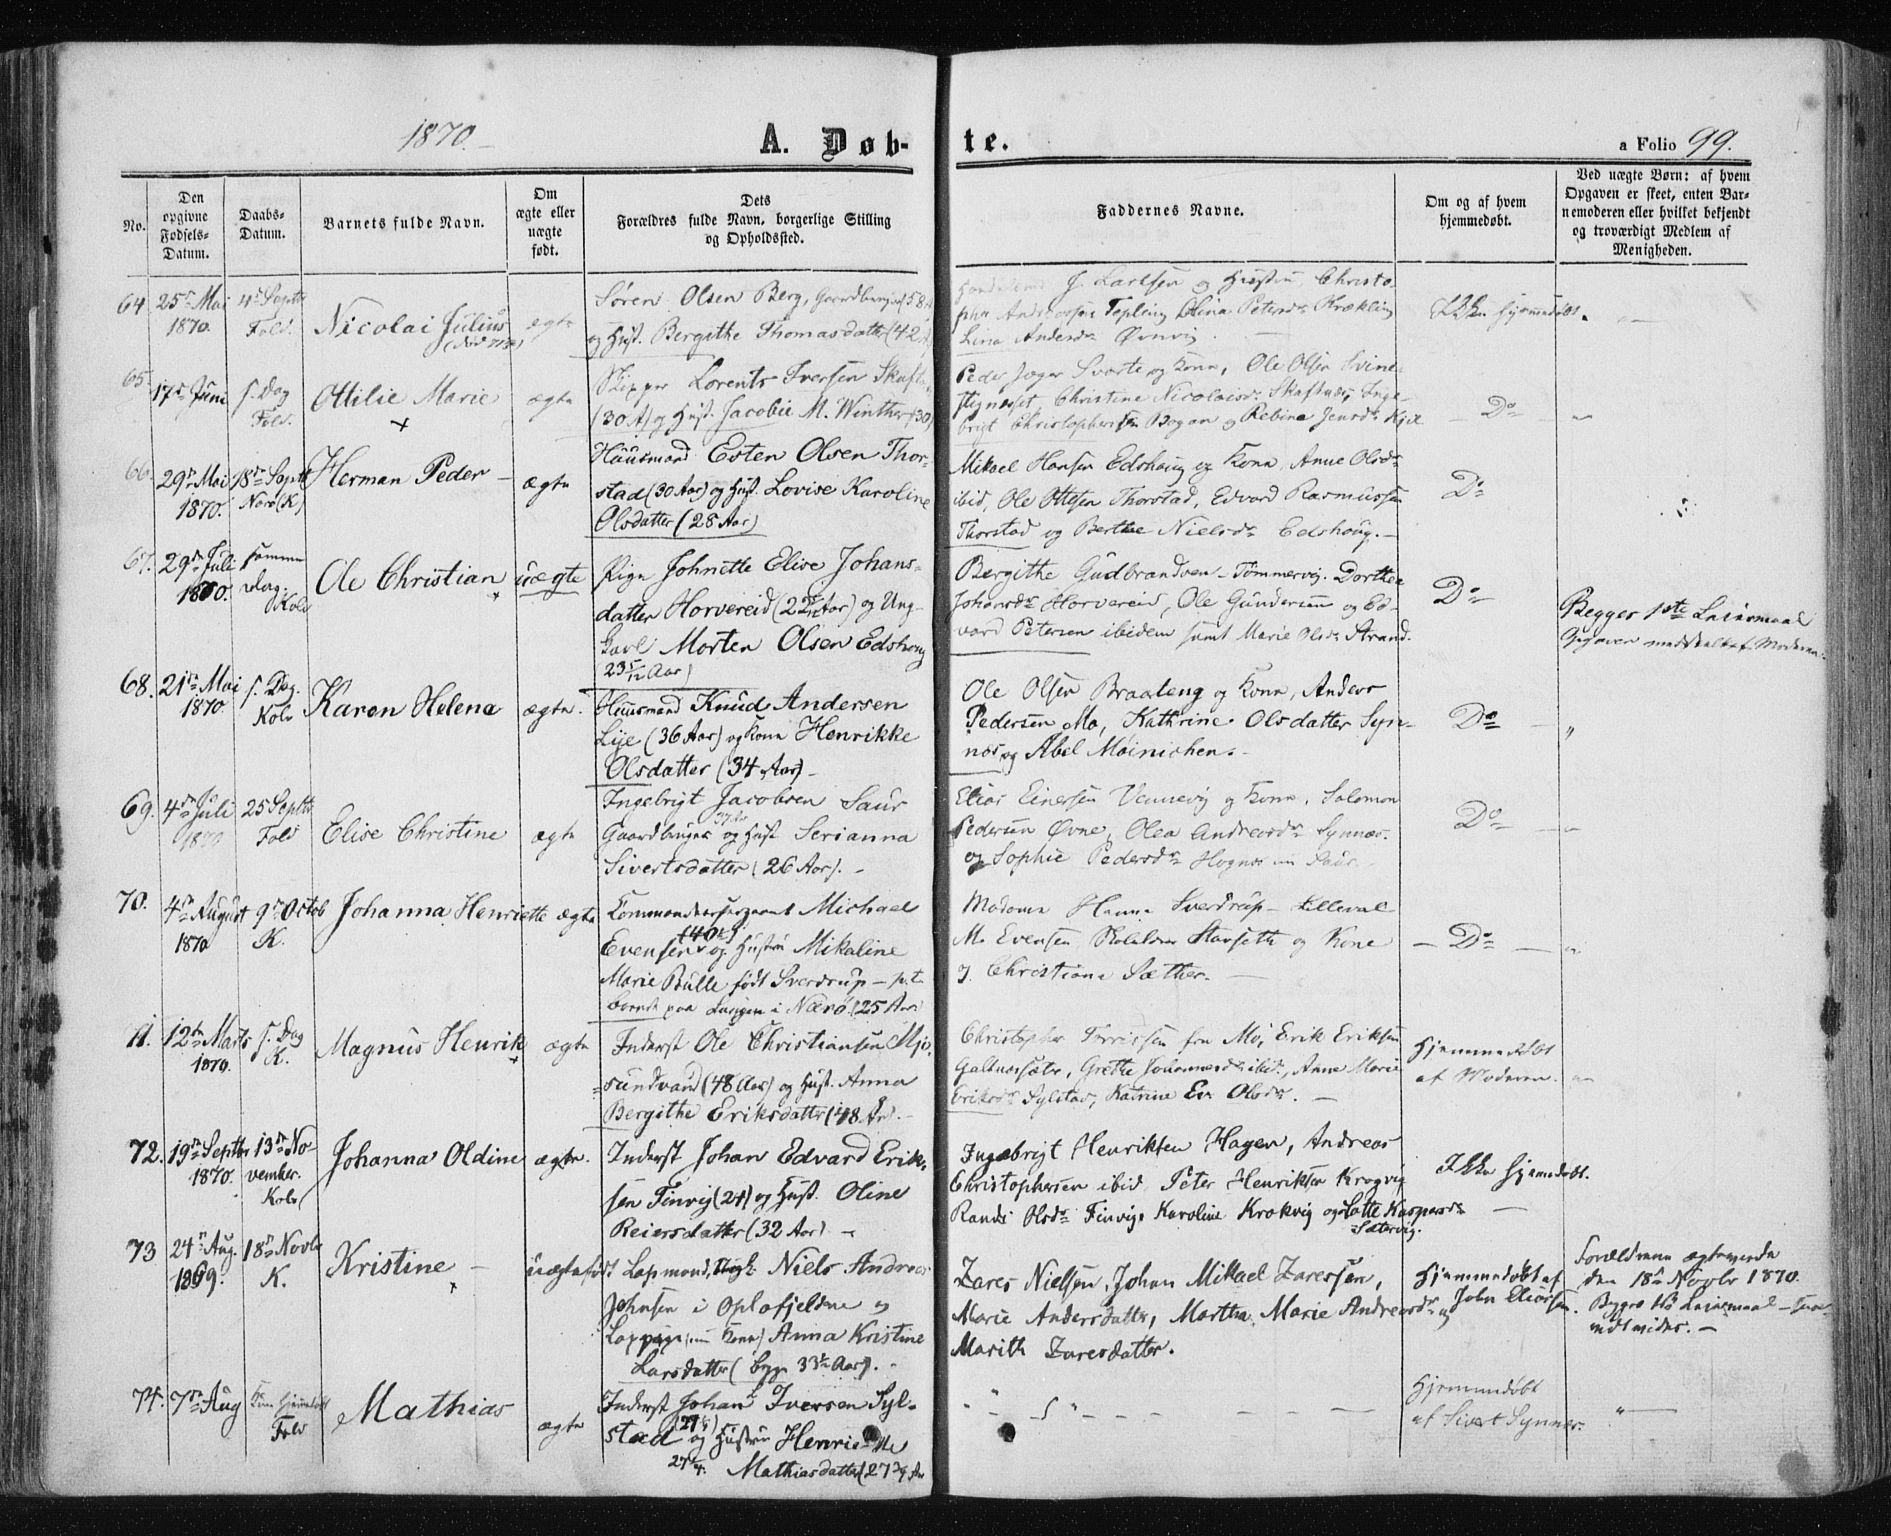 1870.
A. Døb-
te.
a Folio 99.
No.
Den opgivne Fødsels-Datum.
Daabs-Datum.
Barnets fulde Navn.
Om ægte eller uægte født.
Dets
Forældres fulde Navn, borgerlige Stilling
og Opholdssted.
Faddernes Navne.
Om og af hvem
hjemmedøbt.
Ved uægte Børn: af hvem
Opgaven er skeet, enten Bar-
nemoderen eller hvilket bekjendt
og troværdigt Medlem af
Menigheden.
64. 25de Mai 1870. 4de Septbr Fold. Nicolai Julius ægte
Søren Olsen Berg, Gaardbruger (58
og Hust. Bergithe Thomasdatter (42
J. Carlsen og Hustru, Christo-
pher Andreassen Topleng Petersdr Krækling
Lina Andersdr Ørnvig
Ikke hjemmedøbt.
65. 17de Juni s. Dag Fold. Ottilie Marie ægte
Skipper Lorents Iversen Skaft-
(30 A) og Hust. Jacobie M. Winther (30)
Peder Jæger Svarte og Kone, Ole Olsen Svine-
Christine Nicolaisdr Skaftnæs, Inge-
brigt Christophersen Bogan og Rebina Jensdr
Do
66. 29de Mai 1870. 18de Septbr Nærø (K) Herman Peder ægte
Huusmand Esten Olsen Thor-
stad (30 Aar) og Hust. Lovise Karoline
Olsdatter (28 Aar)
Mikael Hansen Edshoug og Kone, Anne Olsdr
ibid, Ole Ottesen Thorstad, Edvard Rasmussen
Thorstad og Berthe Nielsdr Edshoug.
Do
67. 29de Juli 1870. samme Dag. Kolv Ole Christian uægte
Pige Johnette Elise Johans-
datter Horvereid (22 Aar) og Ung-
karl Morten Olsen Edshoug
(23 5/12 Aar)
Bergithe Gudbrandsen Tømmervig. Dorthea
Johansdr Horvereid, Ole Gundersen og Ed-
vard Petersen ibidem samt Marie Olsdr Strand.
Do
Begges 1ste Leiermaal
Opgaven meddeelt af Moderen.
68. 21de Mai 1870 s. Dag. Kolv Karen Helena ægte.
Huusmand Knud Andersen
Lije (36 Aar) og Kone Henrikke
Olsdatter (34 Aar)
Ole Olsen Braateng og Kone, Anders
Pedersen Mo, Kathrine Olsdatter Syn-
nes, og Abel Møinichen.
Do
69. 4de Juli 1870 25 Septbr Fold Elise Christine ægte
Ingebrigt Jacobsen Saur
Gaardbruger og Hust Serianna
Sivertsdatter (26 Aar).
Elias Einersen Vennevig og Kone, Salomon
Pedersen Øvne, Olea Andreasdr Synnæs.
og Sophie Pedersdr Hognes Saur.
Do
70. 4de August 1870 9de Octob K. Johanna Henriette ægte
Commandeersergeant Michael
Evensen (40) og Hustru Mikaline
Marie Bulle født Sverdrup - p.t.
boende paa i Nærø (25 Aar)
Madame Hanna Sverdrup
M. Evensen, Stavseth og Kone
J. Christiane Sæther.
Do
71. 12te Marts 1870. s. Dag K. Magnus Henrik ægte
Inderst Ole Christiansen Mjo-
sundvand (48 Aar) og Hust. Anna
Bergithe Eriksdatter (48 Ar).
Christopher Torrissen fra Mo, Erik Eriksen
Galtnessætr, Grethe Johannesdr ibid, Anne Marie
Eriksdr Sylstad, Katrine Ev. Olsdr.
Hjemmedøbt
af Moderen.
72. 19de Septbr 1870. 13de November. Kolv Johanna Oldine ægte.
Inderst Johan Edvard Erik-
sen Finvig (24) og Hust. Oline
Reiersdatter (32 Aar)
Ingebrigt Henriksen Hagen, Andreas
Christophersen ibid, Peter Henriksen Krogvig
Randi Olsdr Finvig, Karoline Krokvig og Lotte Kaspersdr
Sætervig.
Ikke hjemmedøbt.
73 24de Aug. 1869. 18de Novbr K. Kristine uægtefødt
Lapmand, Niels Andreas
Johnsen i Oplofjeldne og
Lappige (nu Kone) Anna Kristine
Larsdatter (begge 33½ Aar).
Zares Nielsen, Johan Mikael Zaressen,
Marie Andersdatter, Martha Marie Andreasdr og
Marith Zaresdatter.
Hjemmedøbt af
John Eliassen.
Forældrene ægteviede
den 18de Novbr 1870.
Begges 1ste Leiermaal
74. 7de Aug Fold Mathias ægte
Inderst Johan Iversen Syl-
stad og Hustru Henriette
Mathiasdatter (27
Hjemmedøbt
af Sivert Synnes.